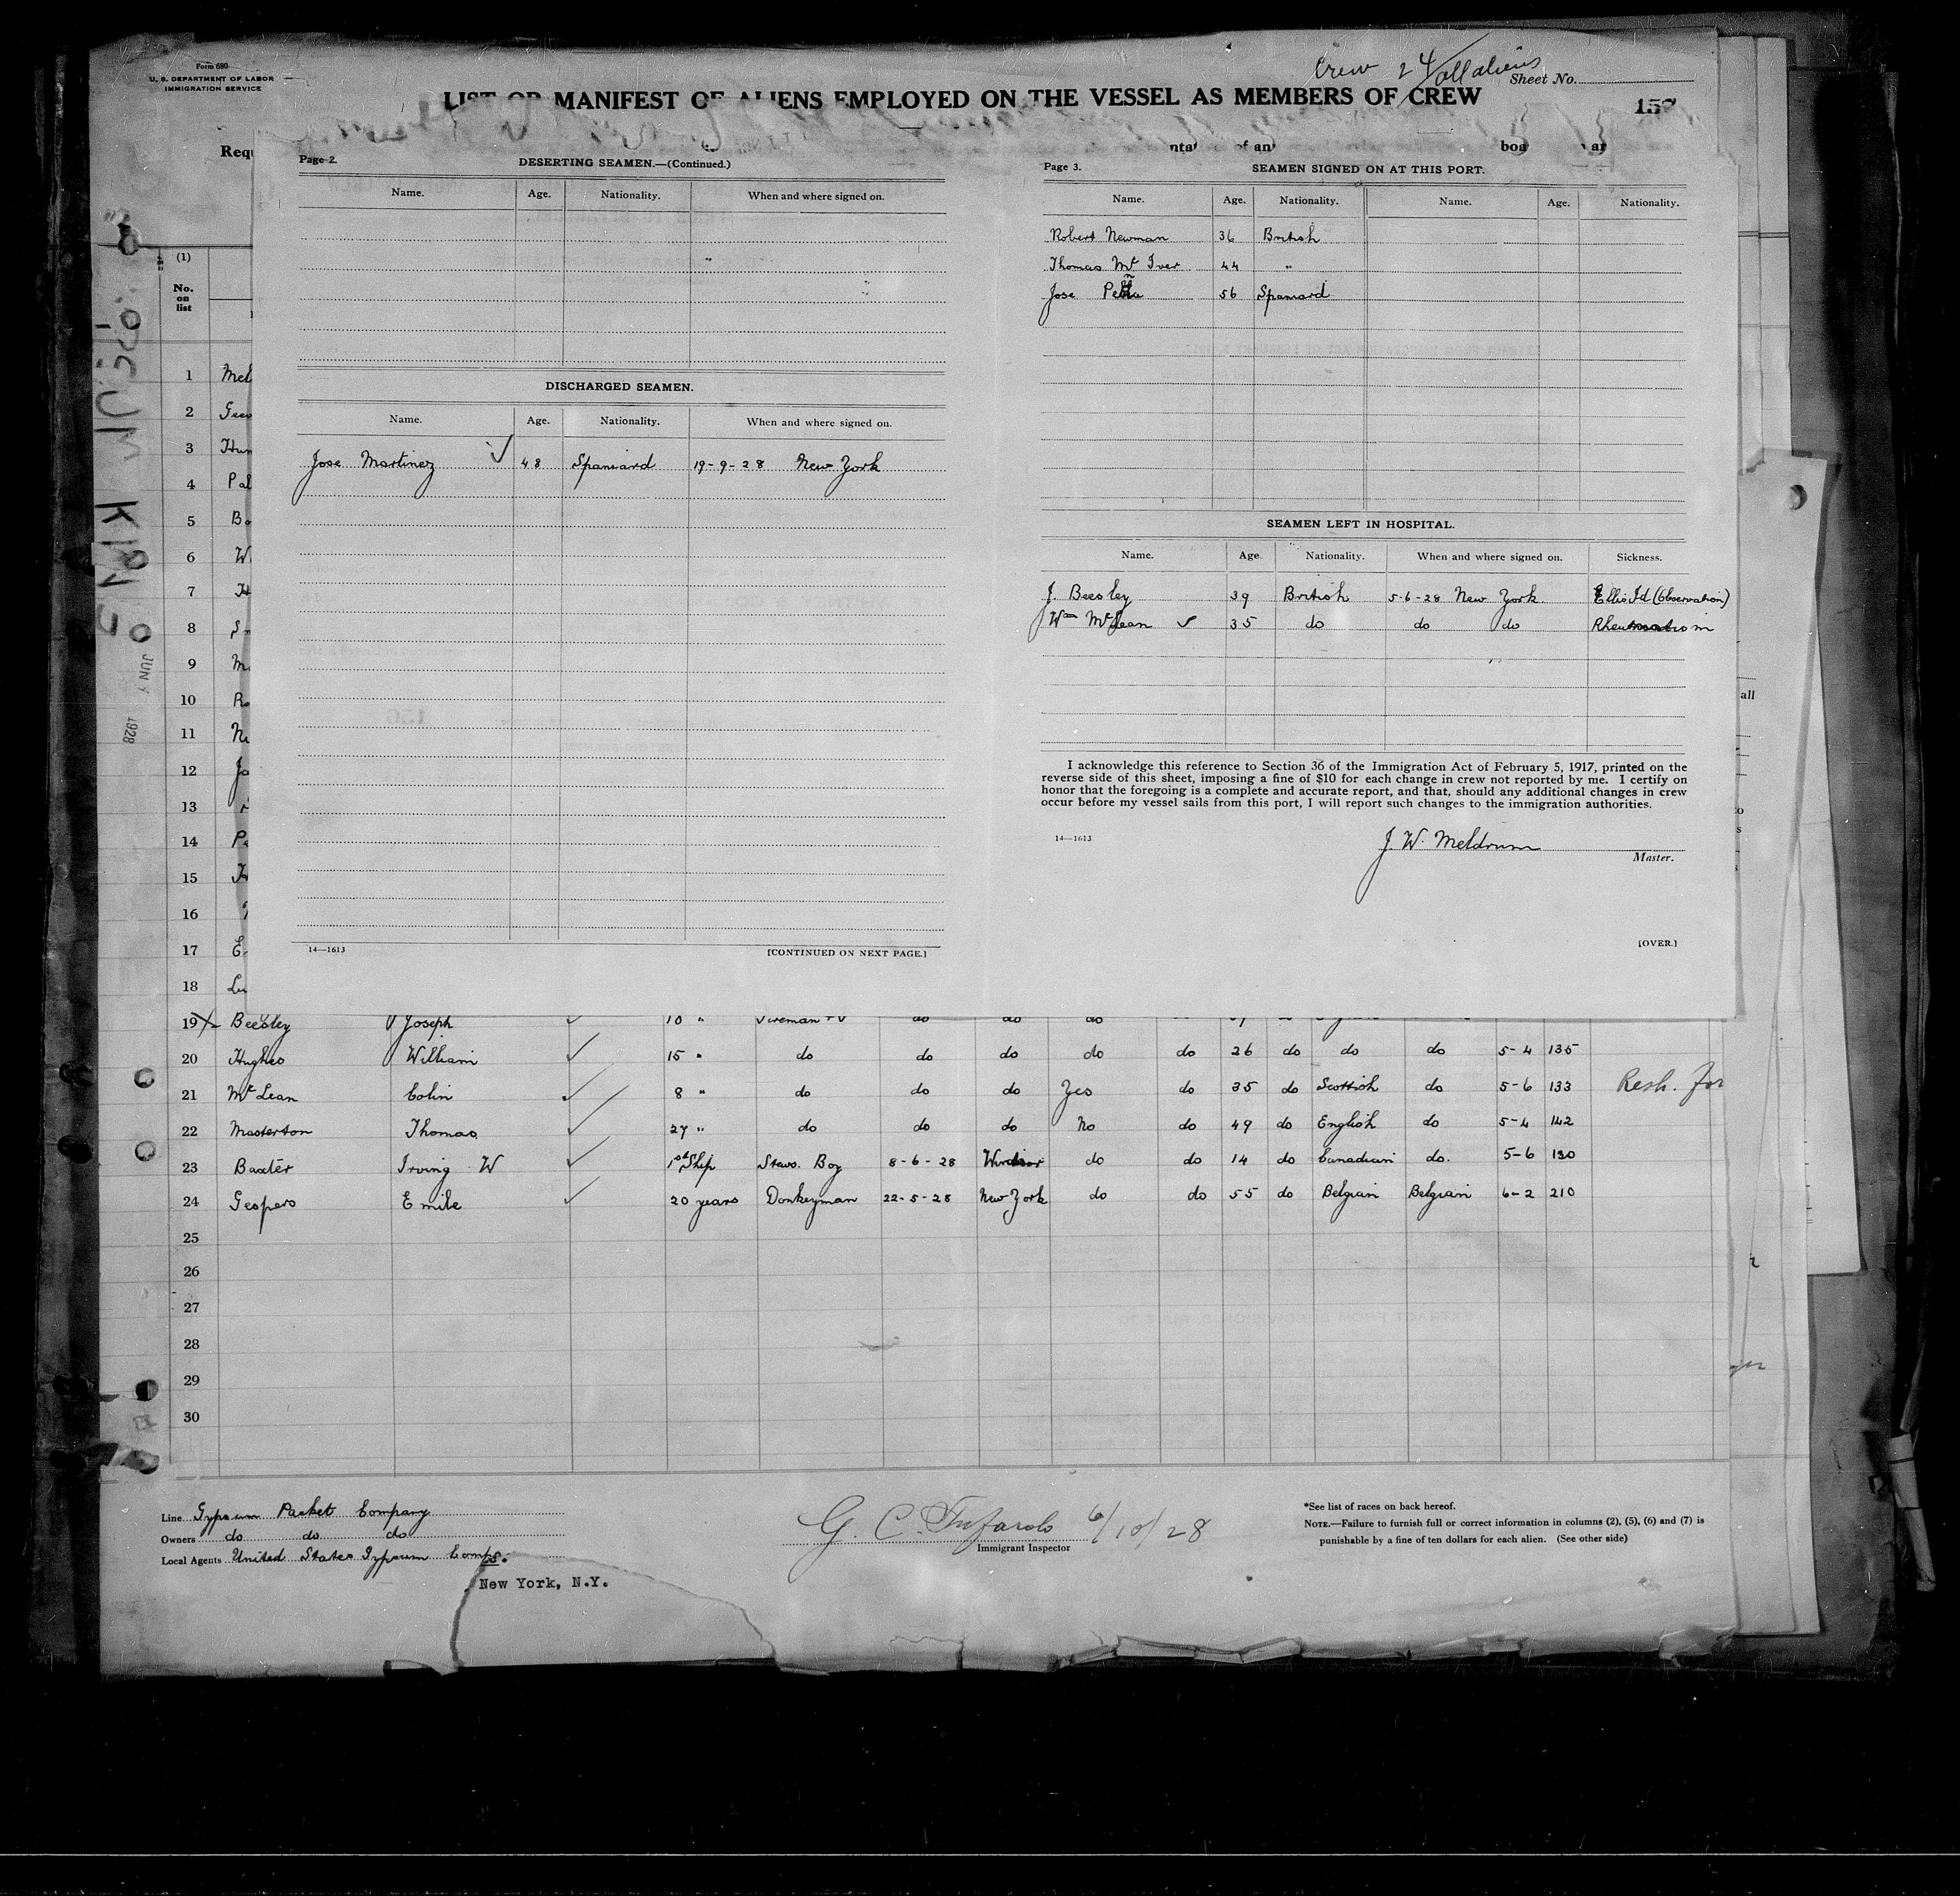 Form 680
U. S. DEPARTMENT OF LABOR
IMMIGRATION SERVICE
Crew 24 / all aliens
Sheet No.
LIST OR MANIFEST OF ALIENS EMPLOYED ON THE VESSEL AS MEMBERS OF CREW
Page 2.
DESERTING SEAMEN.—(Continued.)
Name. Age. Nationality. When and where signed on.
DISCHARGED SEAMEN.
Name. Age. Nationality. When and where signed on.
Jose Martinez 48 Spaniard 19-9-28 New York
14—1613 [CONTINUED ON NEXT PAGE.]
Page 3.
SEAMEN SIGNED ON AT THIS PORT.
Name. Age. Nationality. Name. Age. Nationality.
Robert Newman 36 British
Thomas Mc Iver 44 "
Jose 56 Spaniard
SEAMEN LEFT IN HOSPITAL.
Name. Age. Nationality. When and where signed on. Sickness.
J. Beesley 39 British 5-6-28 New York. Ellis Id (Observation)
Wm McLean 35 do do do Rheumatism
I acknowledge this reference to Section 36 of the Immigration Act of February 5, 1917, printed on the
reverse side of this sheet, imposing a fine of $10 for each change in crew not reported by me. I certify on
honor that the foregoing is a complete and accurate report, and that, should any additional changes in crew
occur before my vessel sails from this port, I will report such changes to the immigration authorities.
14—1613
J. W. Meldrum
Master.
[OVER.]
(1)
No.
on
list
1 Mel
2
3 Hun
4 Pal
5
6
7
8
9
10
11
12
13
14
15
16
17
18
19 Beesley Joseph
20 Hughes William 15 " do do do do do 26 do do do 5-4 135
21 Mc Lean Colin 8 " do do do Yes do 35 do Scottish do 5-6 133 Resh. for
22 Masterton Thomas 27 " do do do No do 49 do English do 5-4 142
23 Baxter Irving W 1st Ship Stwds. Boy 8-6-28 Windsor do do 14 do Canadian do. 5-6 130
24 Gespers Emile 20 years Donkeyman 22-5-28 New York do do 55 do Belgian Belgian 6-2 210
25
26
27
28
29
30
JUN
1928
Line Gypsum Packet Company
Owners do do do
Local Agents United States Gypsum Comp
New York, N.Y.
G. C. 6/10/28
Immigrant Inspector
*See list of races on back hereof.
NOTE.—Failure to furnish full or correct information in columns (2), (5), (6) and (7) is
punishable by a fine of ten dollars for each alien. (See other side)